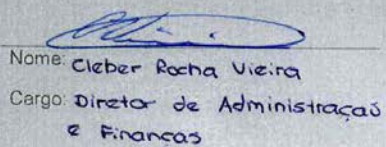 Nome: Cleber Rocha Vieira
Cargo: Diretor de Administração
e Finanças